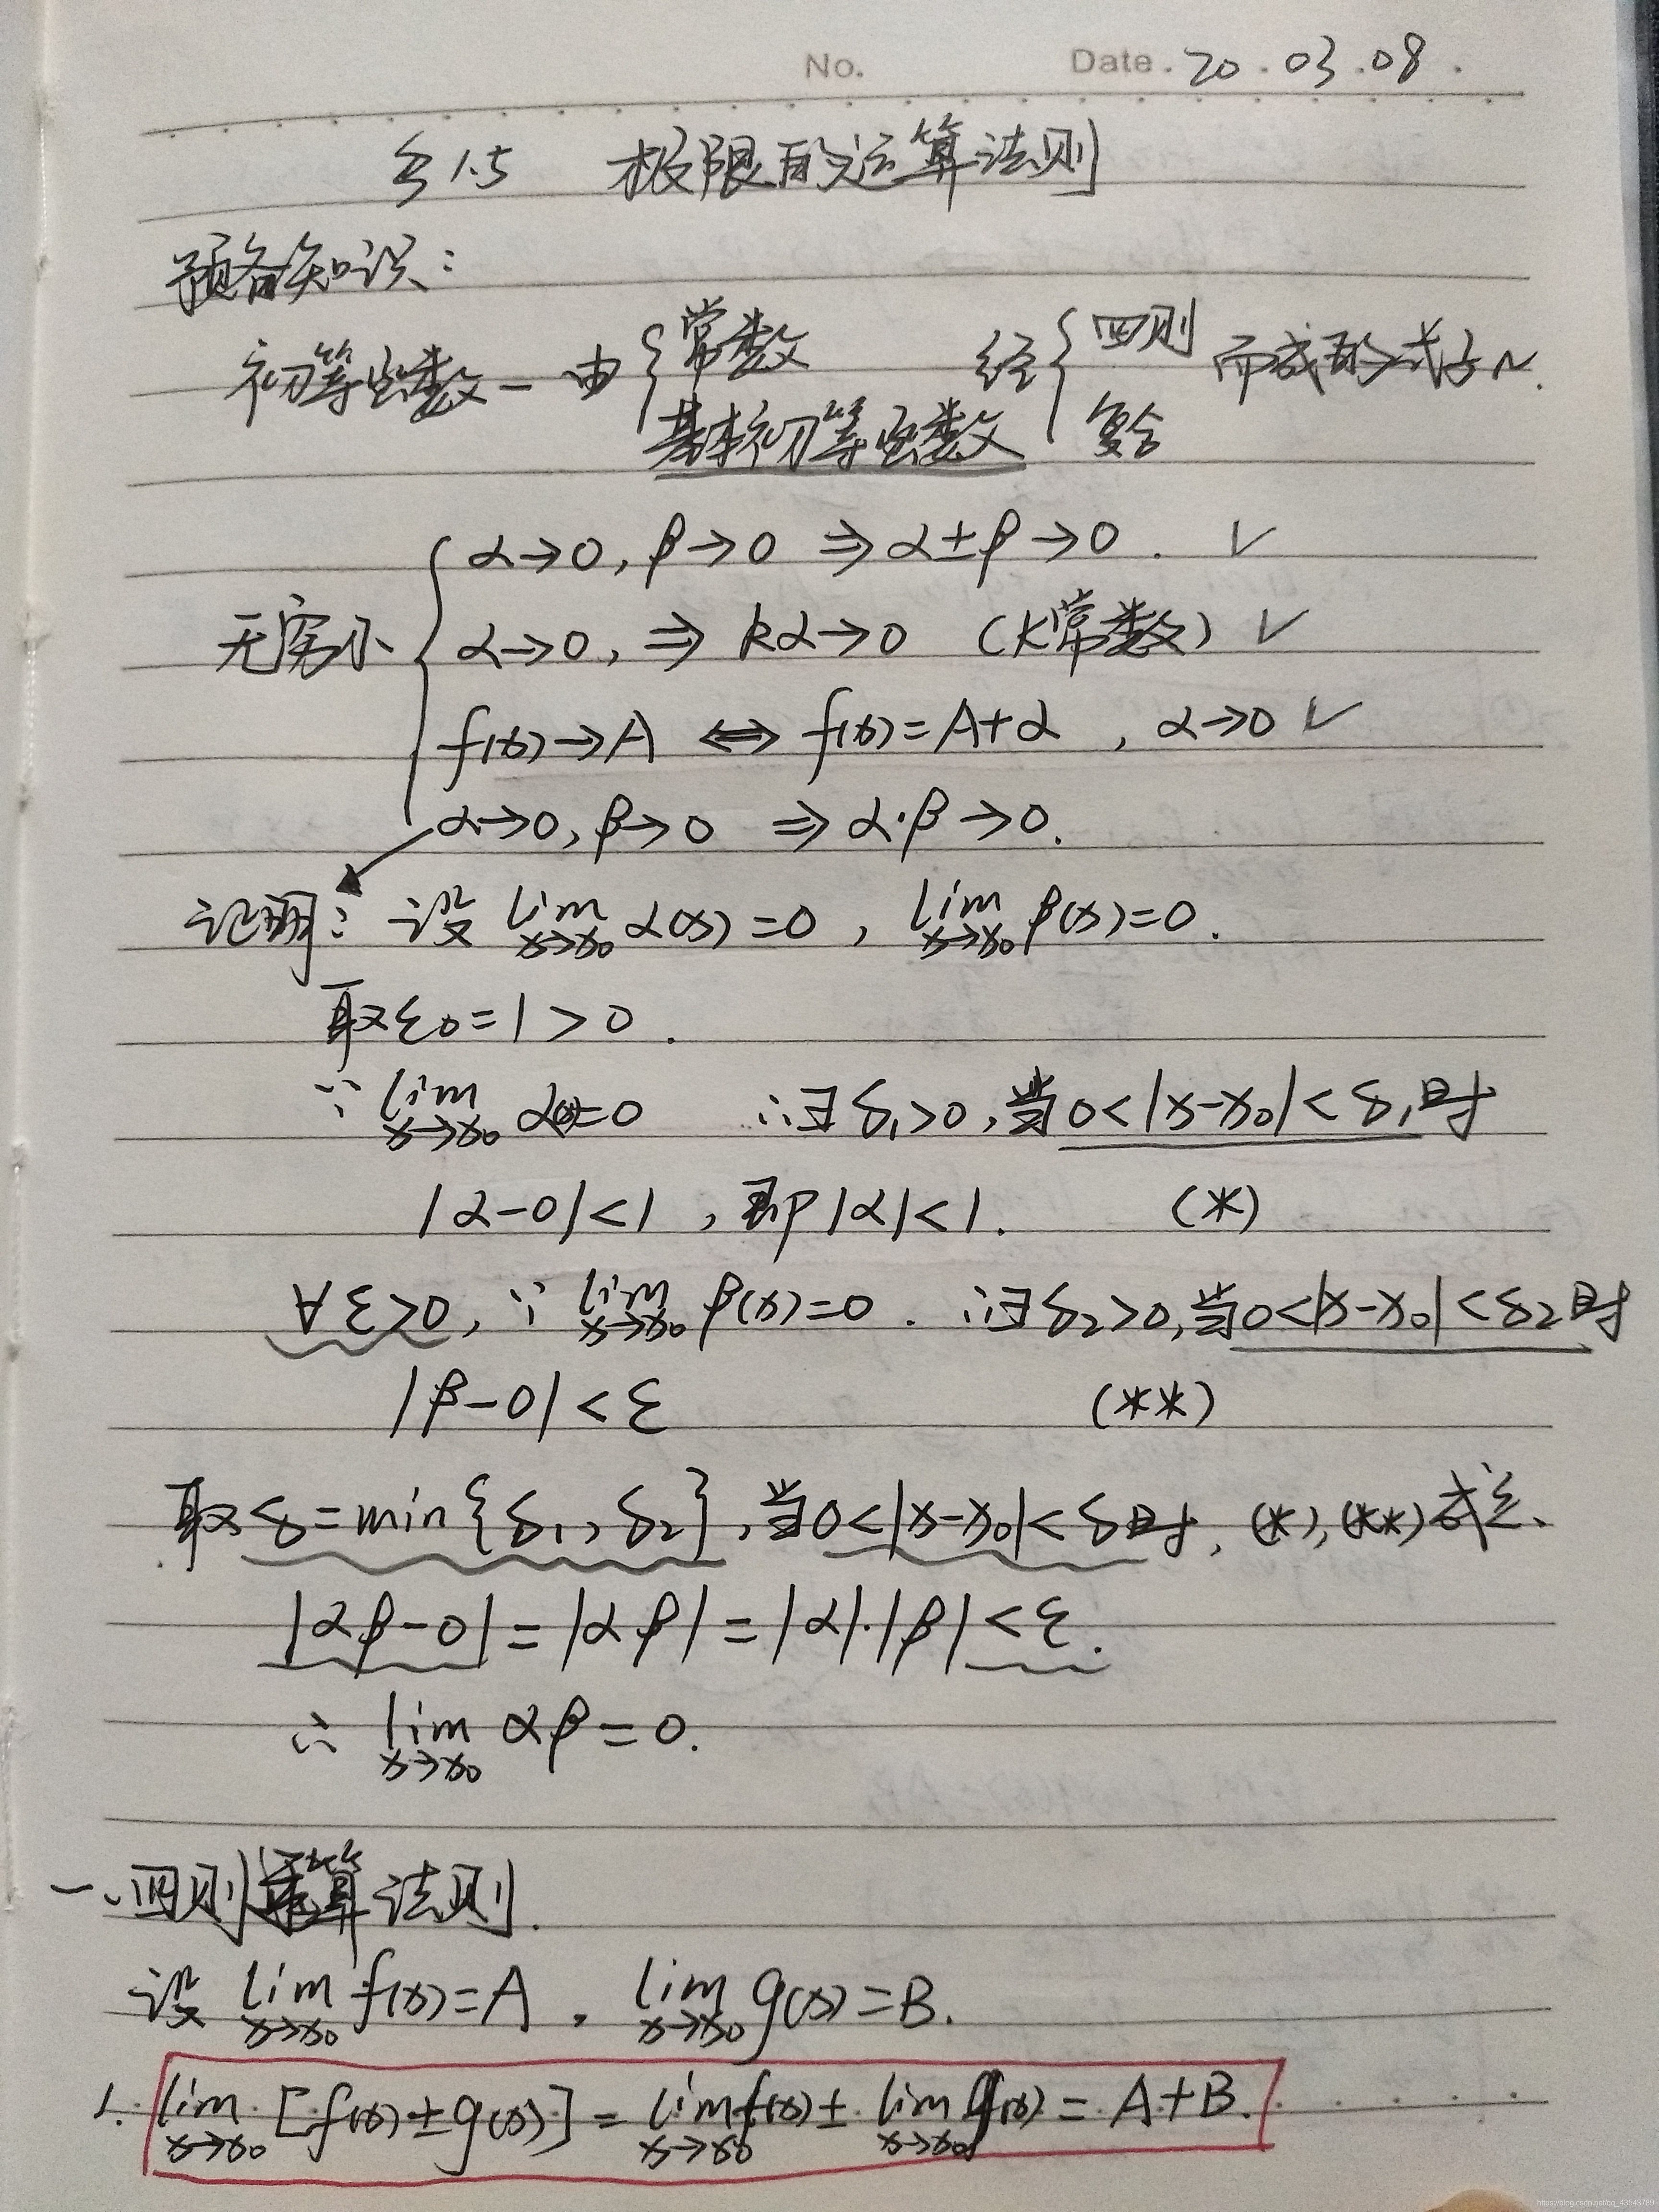 No.
Date. 20.03.08.
§1.5 极限的运算法则
预备知识:
初等函数—由{常数 基本初等函数 经{四则 复合 而成的式子~.
无穷小{α→0, β→0 ⇒ α±β→0. √
α→0, ⇒ kα→0 (k常数) √
f(x)→A ⇔ f(x)=A+α, α→0 √
α→0, β→0 ⇒ α·β→0.
证明: 设 lim x→x₀ α(x)=0, lim x→x₀ β(x)=0.
取ε₀=1>0.
∵ lim x→x₀ α(x)=0 ∴∃δ₁>0, 当0<|x-x₀|<δ₁时
|α-0|<1, 即|α|<1. (*)
∀ε>0, ∵ lim x→x₀ β(x)=0. ∴∃δ₂>0, 当0<|x-x₀|<δ₂时
|β-0|<ε (**)
取δ=min{δ₁, δ₂}, 当0<|x-x₀|<δ时, (*), (**)成立.
|αβ-0|=|αβ|=|α|·|β|<ε.
∴ lim x→x₀ αβ=0.
一、四则运算法则.
设 lim x→x₀ f(x)=A, lim x→x₀ g(x)=B.
1. lim x→x₀ [f(x)±g(x)] = lim x→x₀ f(x) ± lim x→x₀ g(x) = A+B.